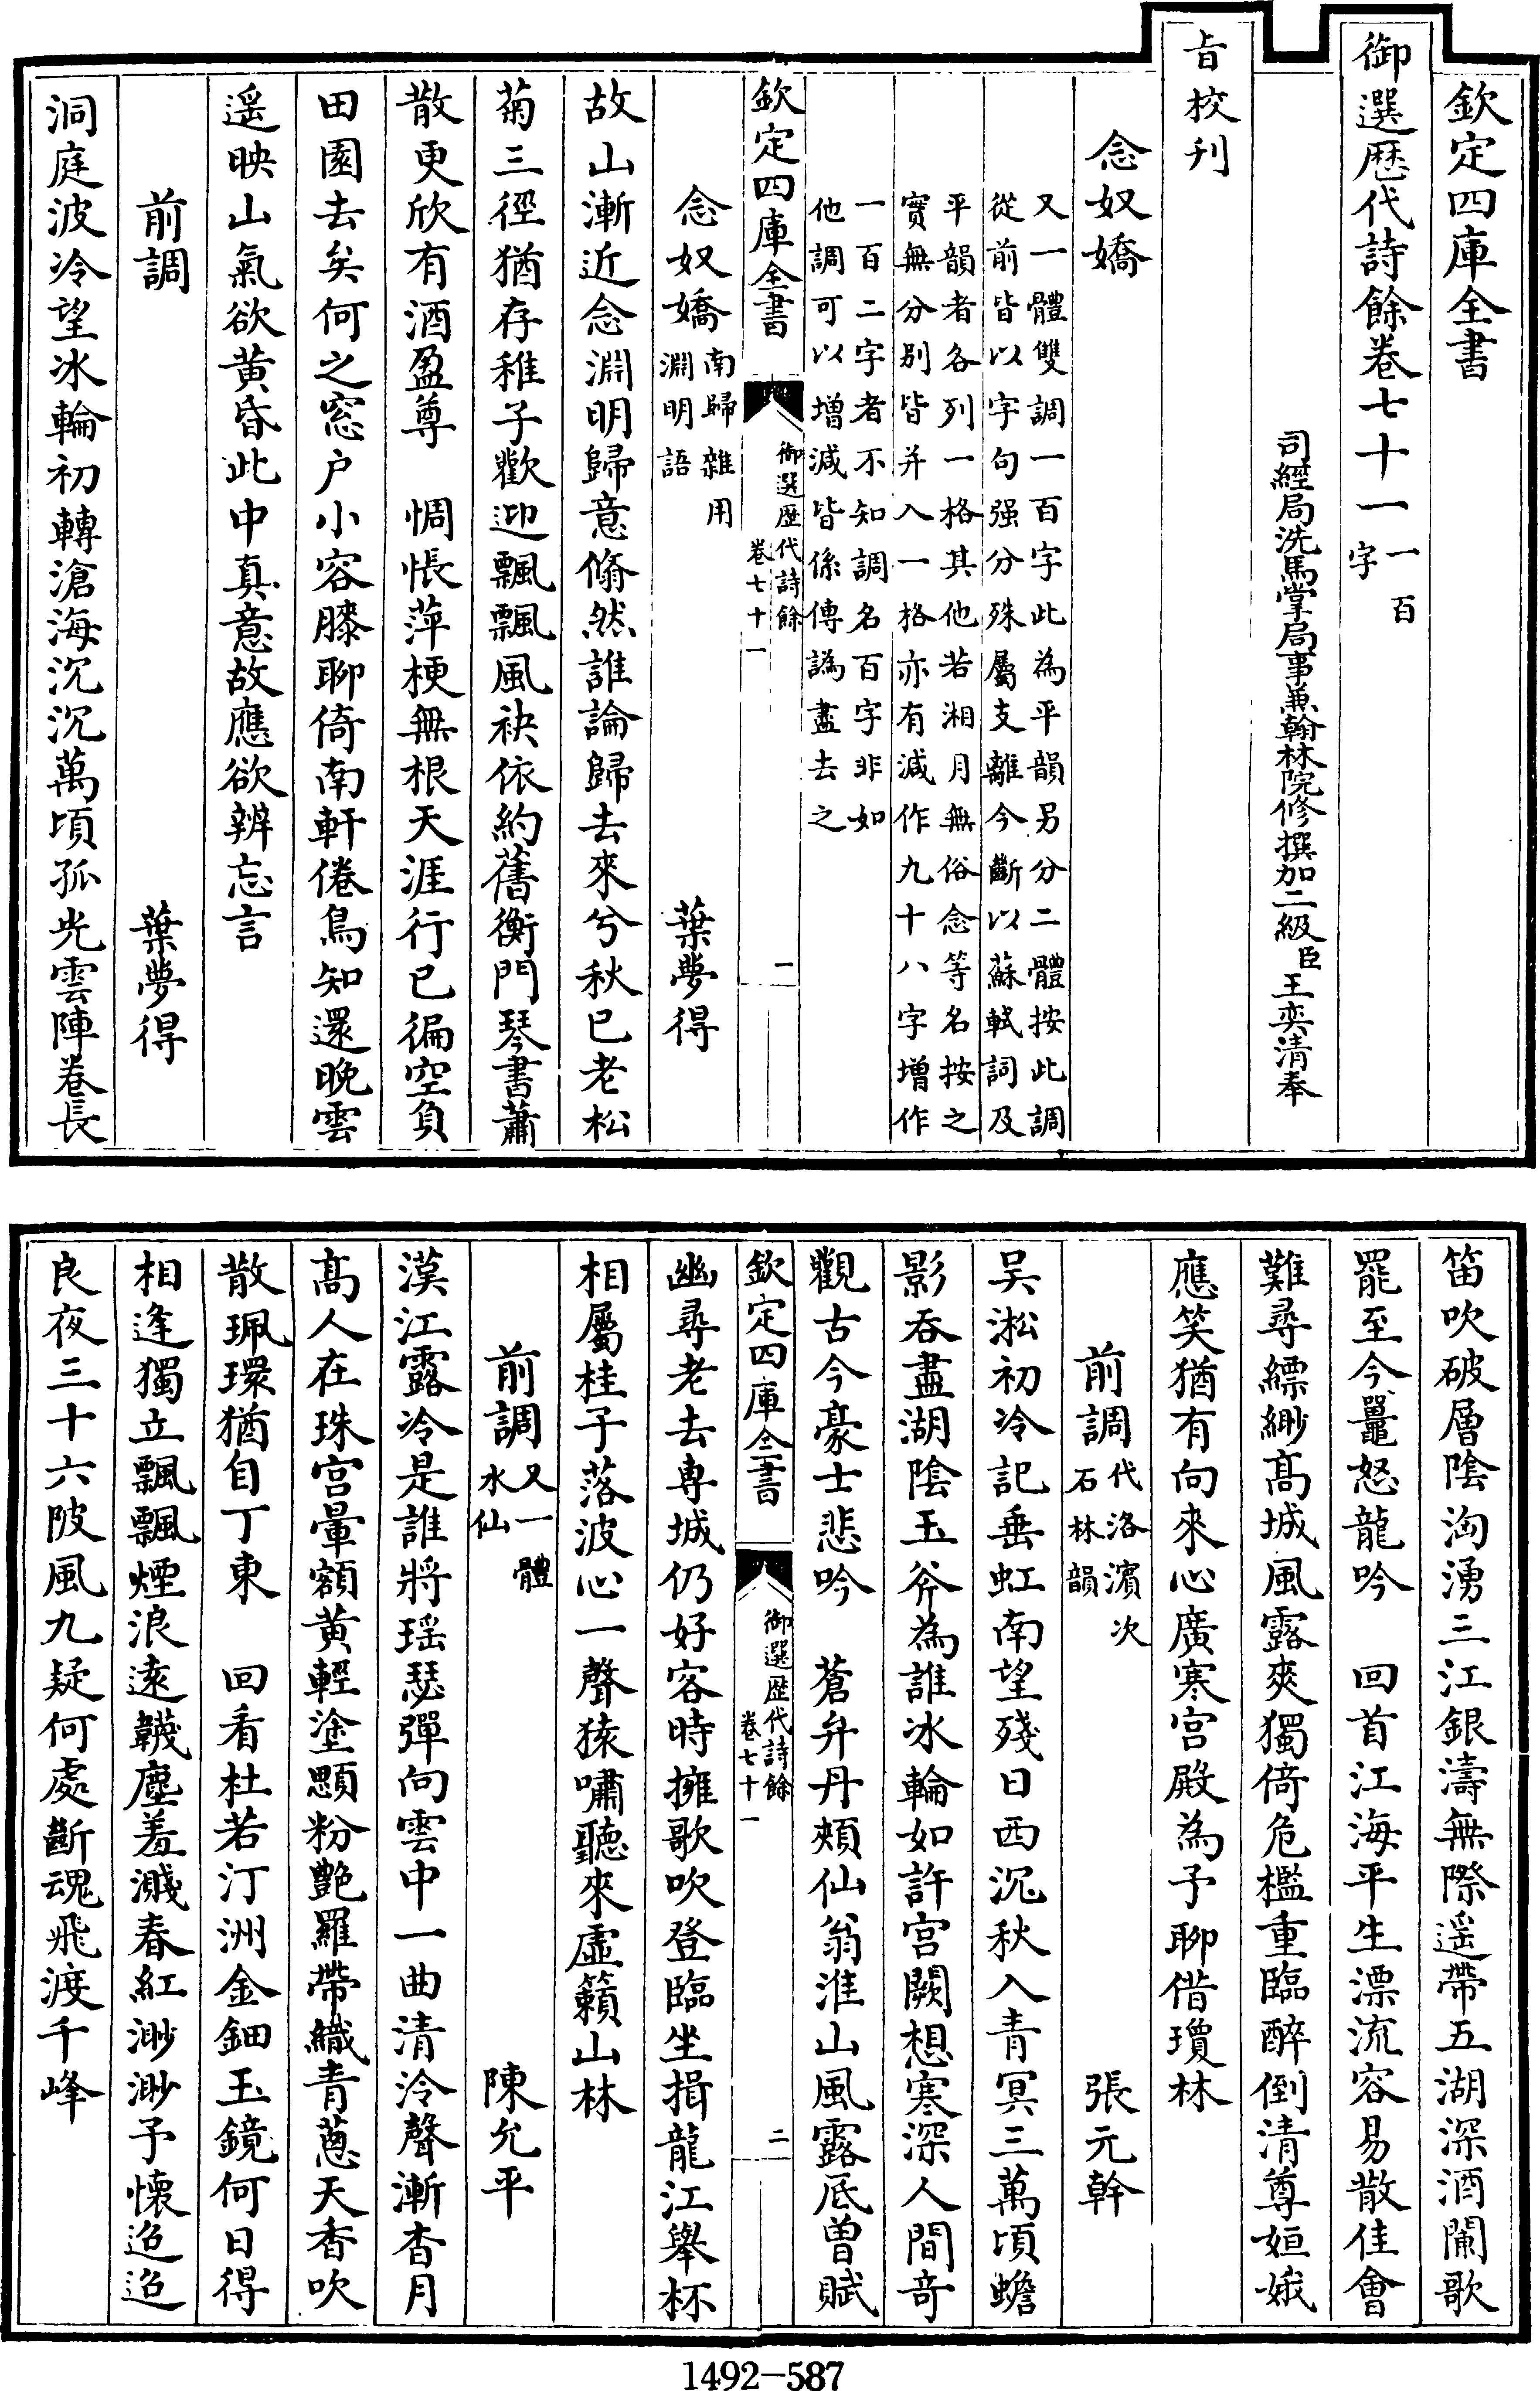 欽定四庫全書
御選歴代詩餘卷七十一一百字
司經局洗馬掌局事兼翰林院修撰加二級臣王奕清奉
旨校刋
念奴嬌
又一體雙調一百字此為平韻另分二體按此調
從前皆以字句强分殊屬支離今斷以蘇軾詞及
平韻者各列一格其他若湘月無俗念等名按之
實無分别皆并入一格亦有減作九十八字增作
一百二字者不知調名百字非如
他調可以增減皆係傳譌盡去之
欽定四庫全書
御選歴代詩餘
卷七十一
一
念奴嬌南歸雜用淵明語
葉夢得
故山漸近念淵明歸意翛然誰論歸去來兮秋已老松
菊三徑猶存稚子歡迎飄飄風袂依約舊衡門琴書蕭
散更欣有酒盈尊　惆悵萍梗無根天涯行已徧空負
田園去矣何之窓户小容膝聊倚南軒倦鳥知還晚雲
遥映山氣欲黄昏此中真意故應欲辨忘言
前調
葉夢得
洞庭波冷望冰輪初轉滄海沉沉萬頃孤光雲陣卷長
笛吹破層陰洶湧三江銀濤無際遥帶五湖深酒闌歌
罷至今鼉怒龍吟　回首江海平生漂流容易散佳會
難尋縹緲髙城風露爽獨倚危檻重臨醉倒清尊姮娥
應笑猶有向來心廣寒宫殿為予聊借瓊林
前調代洛濱次石林韻
張元幹
吴淞初冷記垂虹南望殘日西沉秋入青冥三萬頃蟾
影吞盡湖隂玉斧為誰冰輪如許宫闕想寒深人間竒
觀古今豪士悲吟　蒼弁丹頰仙翁淮山風露底曾賦
幽尋老去専城仍好客時擁歌吹登臨坐揖龍江舉杯
相屬桂子落波心一聲猿嘯聽來虚籟山林
欽定四庫全書
御選歴代詩餘
卷七十一
二
前調又一體水仙
陳允平
漢江露冷是誰將瑶瑟彈向雲中一曲清泠聲漸杳月
髙人在珠宫暈額黄輕塗顋粉艶羅帶織青蔥天香吹
散珮環猶自丁東　回看杜若汀洲金鈿玉鏡何日得
相逢獨立飄飄煙浪逺韈塵羞濺春紅渺渺予懐迢迢
良夜三十六陂風九疑何處斷魂飛渡千峰
1492-587